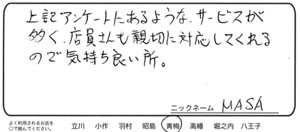 上記アンケートにあるような、サービスが
多く、店員さんも親切に対応してくれる
ので気持ち良い所。
ニックネーム MASA
よく利用されるお店を
○で囲んでください。 立川 小作 羽村 昭島 青梅 高幡 堀之内 八王子